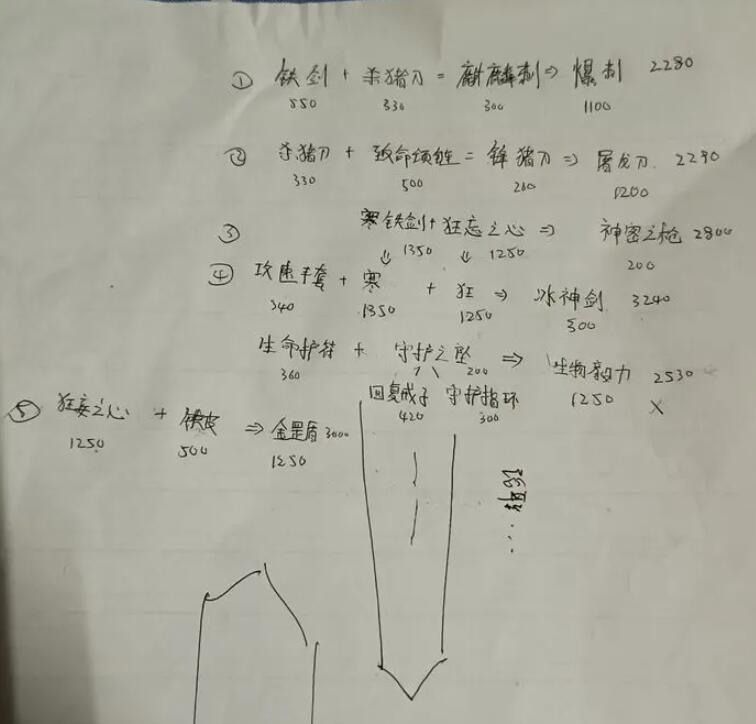 ① 铁剑 + 杀猪刀 = 麒麟刺 ⇒ 爆刺 2280
550 330 300 1100
② 杀猪刀 + 致命项链 = 锋猪刀 ⇒ 屠龙刀 2290
330 500 260 1200
③ 寒铁剑 + 狂忘之心 ⇒ 神密之枪 2800
⇓ 1350 ⇓ 1250 200
④ 攻速手套 + 寒 + 狂 ⇒ 冰神剑 3240
340 1350 1250 300
生命护符 + 守护之坠 ⇒ 生物毅力 2530
360 200 1250 ×
回复戒子 守护指环
420 300
⑤ 狂妄之心 + 铁皮 ⇒ 金罡盾 3000
1250 500 1250